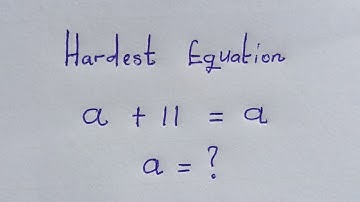 Hardest Equation
a + 11 = a
a = ?